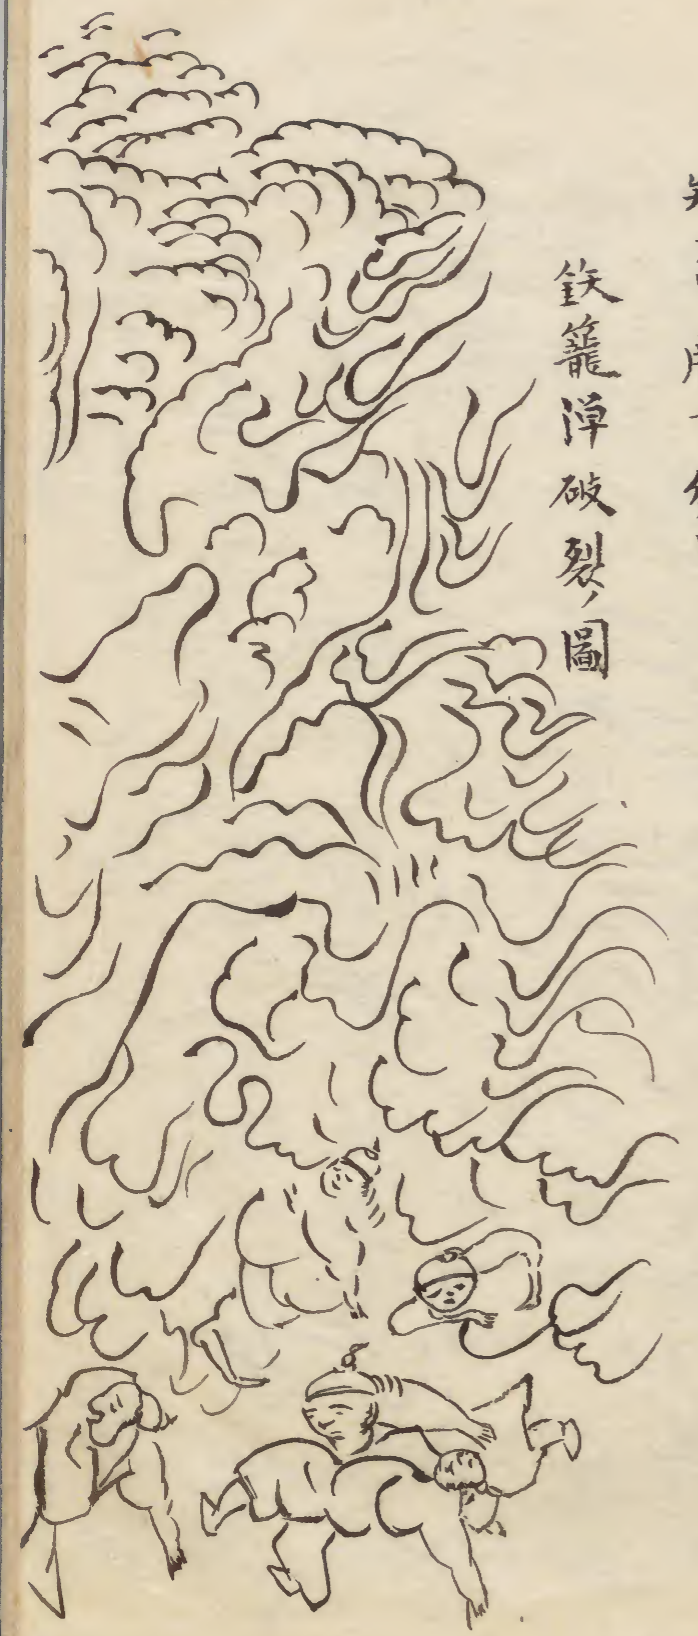 鉄籠弾破裂ノ圖